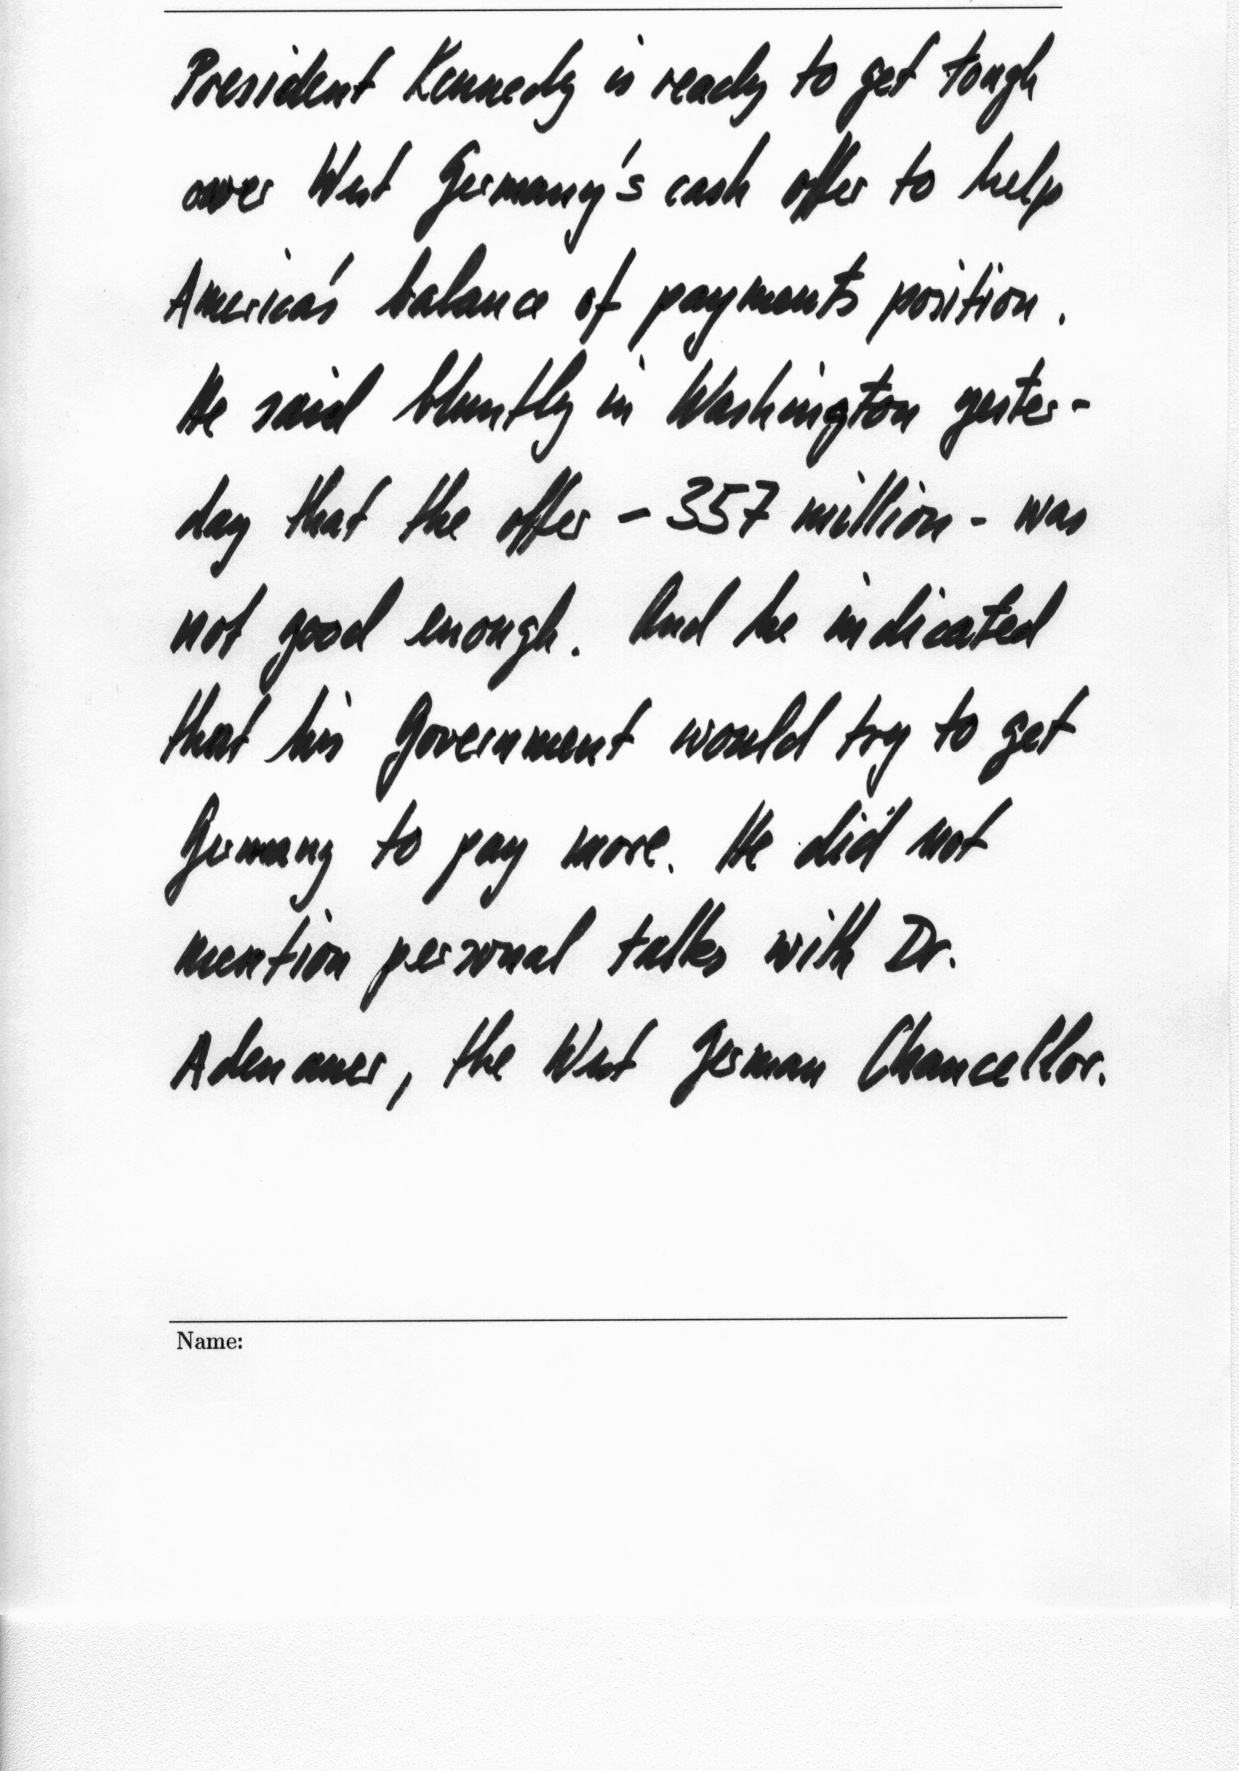 President Kennedy is ready to get tough
over West Germany's cash offer to help
America's balance of payments position.
He said bluntly in Washington yester-
day that the offer - 357 million - was
not good enough. And he indicated
that his Government would try to get
Germany to pay more. He did not
mention personal talks with Dr.
Adenauer, the West German Chancellor.
Name: